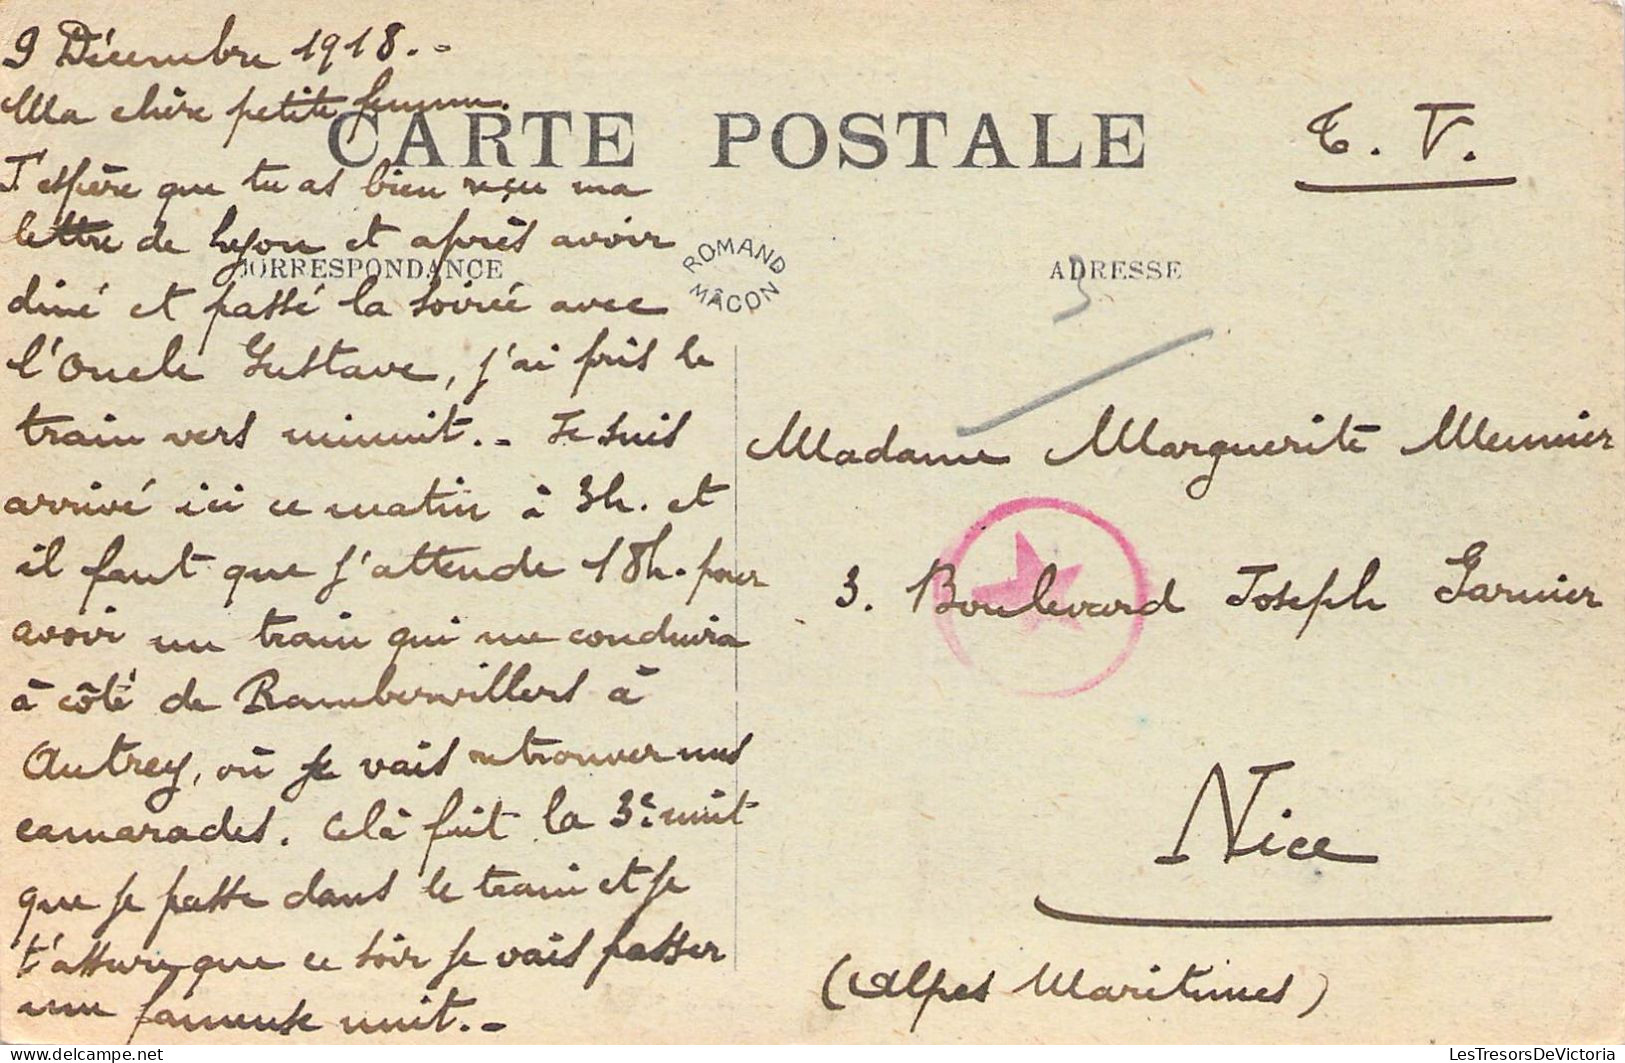 9 Décembre 1918. -
Ma chère petite femme.
CARTE POSTALE
T. V.
J'espère que tu as bien reçu ma
lettre de Lyon et après avoir
CORRESPONDANCE
ROMAND
MÂCON
ADRESSE
3
diné et passé la soirée avec
l'Oncle Gustave, j'ai pris le
train vers minuit. - Je suis
arrivé ici ce matin à 3h. et
il faut que j'attende 18h. pour
avoir un train qui me conduira
à côté de Rambervillers à
Autrey, où je vais retrouver mes
camarades. Celà fait la 3e nuit
que je passe dans le train et je
t'assure que ce soir je vais passer
une fameuse nuit. -
Madame Marguerite Meunier
3. Boulevard Joseph Garnier
Nice
(Alpes Maritimes)
delcampe.net
LesTresorsDeVictoria